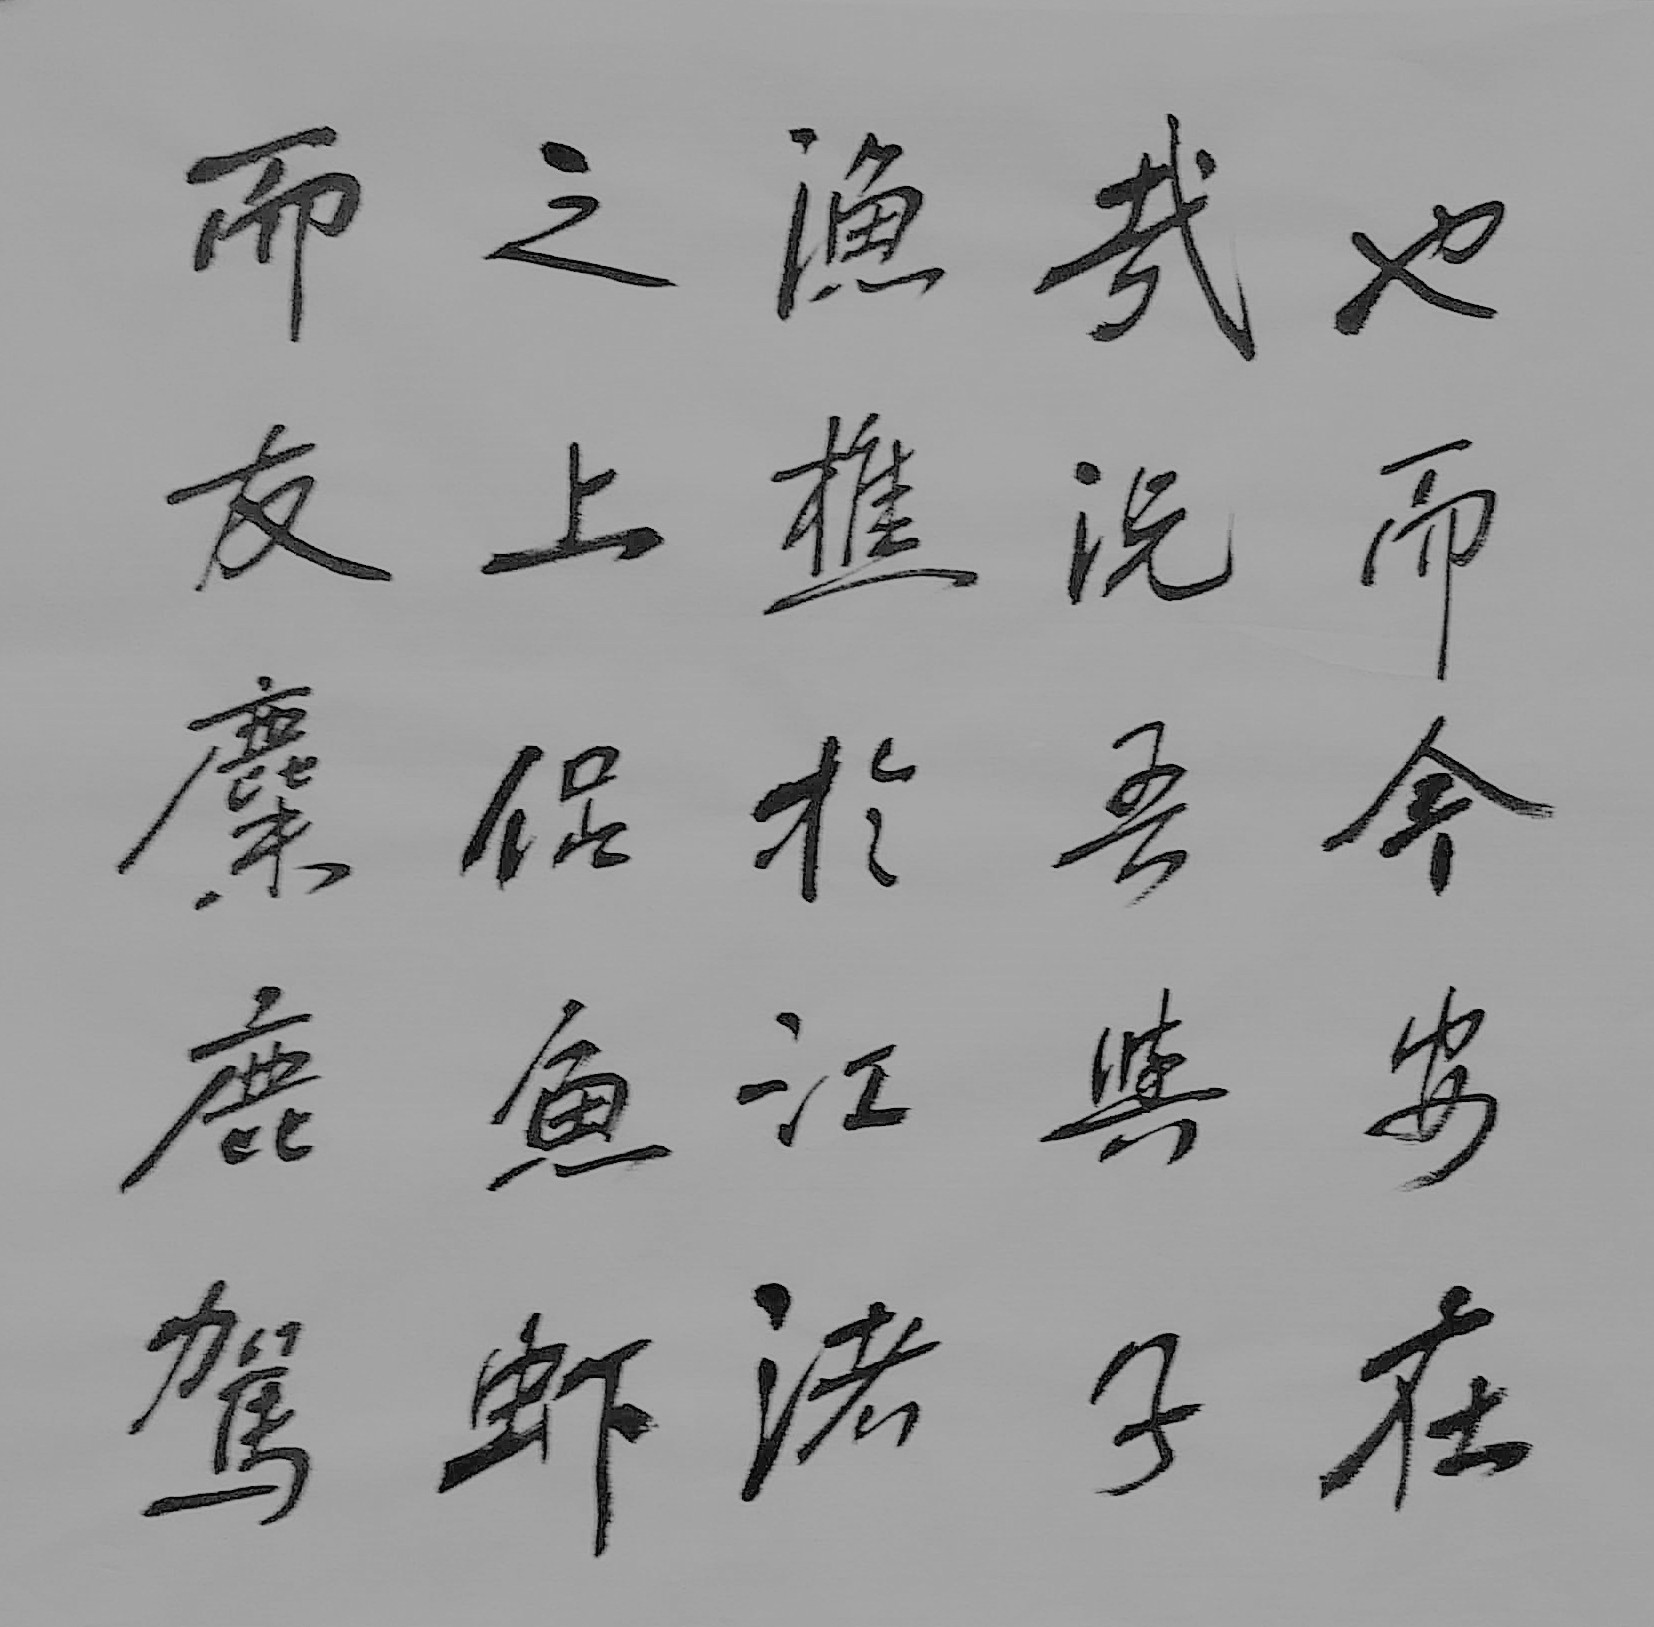 也而今安在
哉況吾與子
漁樵於江渚
之上侶魚蝦
而友麋鹿駕